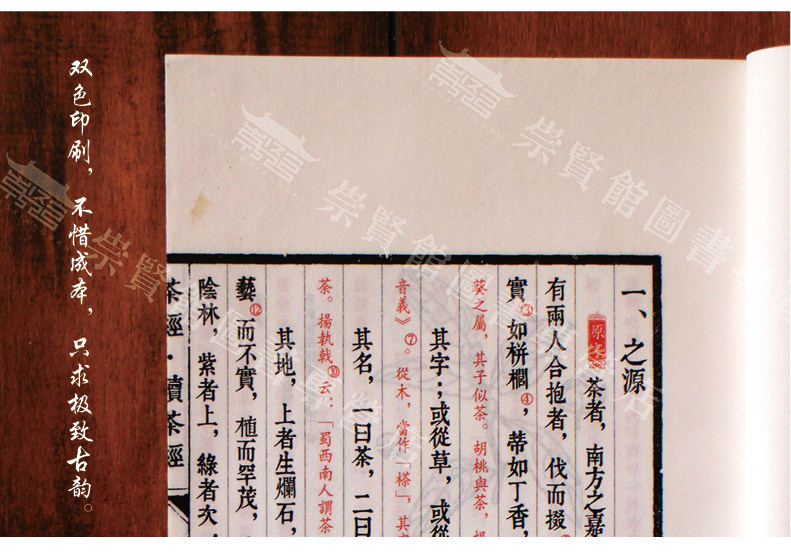 双色印刷，不惜成本，只求极致古韵。
一、之源
原
茶者，南方之嘉
有兩人合抱者，伐而掇
實③如栟櫚④，蒂如丁香，
葵之屬，其子似茶。胡桃與茶，
其字；或從草，或從
音義》⑦。從木，當作「樣」，其
其名，一曰茶，二曰
茶。揚執戟⑩云：「蜀西南人謂茶
其地，上者生爛石，
藝⑫而不實，植而罕茂，
陰林，紫者上，綠者次，
茶經·續茶經
崇賢館圖書
崇賢館圖書
崇賢館